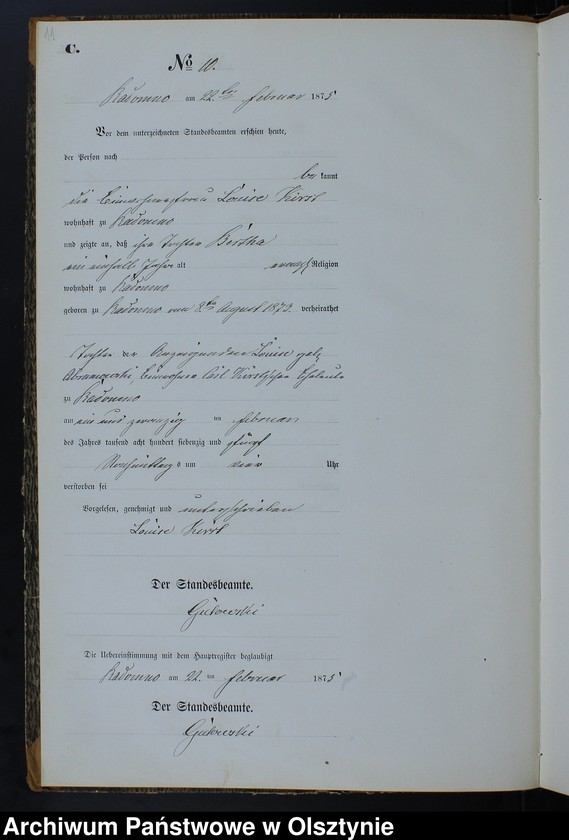 11
C.
No 10.
Radomno am 22ten Februar 1875
Vor dem unterzeichneten Standesbeamten erschien heute,
der Person nach
be kannt
die Einwohnerfrau Louise Kirst
wohnhaft zu Radomno
und zeigte an, daß ihre Tochter Bertha
ein einhalb Jahre alt evangl Religion
wohnhaft zu Radomno
geboren zu Radomno am 8ten August 1873. verheirathet
Tochter der Louise geb.
Einwohner Carl Eheleute
zu Radomno
am ein und zwanzig ten Februar
des Jahres tausend acht hundert siebenzig und fünf
Nachmittags um vier Uhr
verstorben sei
Vorgelesen, genehmigt und unterschrieben
Louise Kirst
Der Standesbeamte.
Gutowski
Die Uebereinstimmung mit dem Hauptregister beglaubigt
Radomno am 22. ten Februar 1875
Der Standesbeamte.
Gutowski
Archiwum Państwowe w Olsztynie